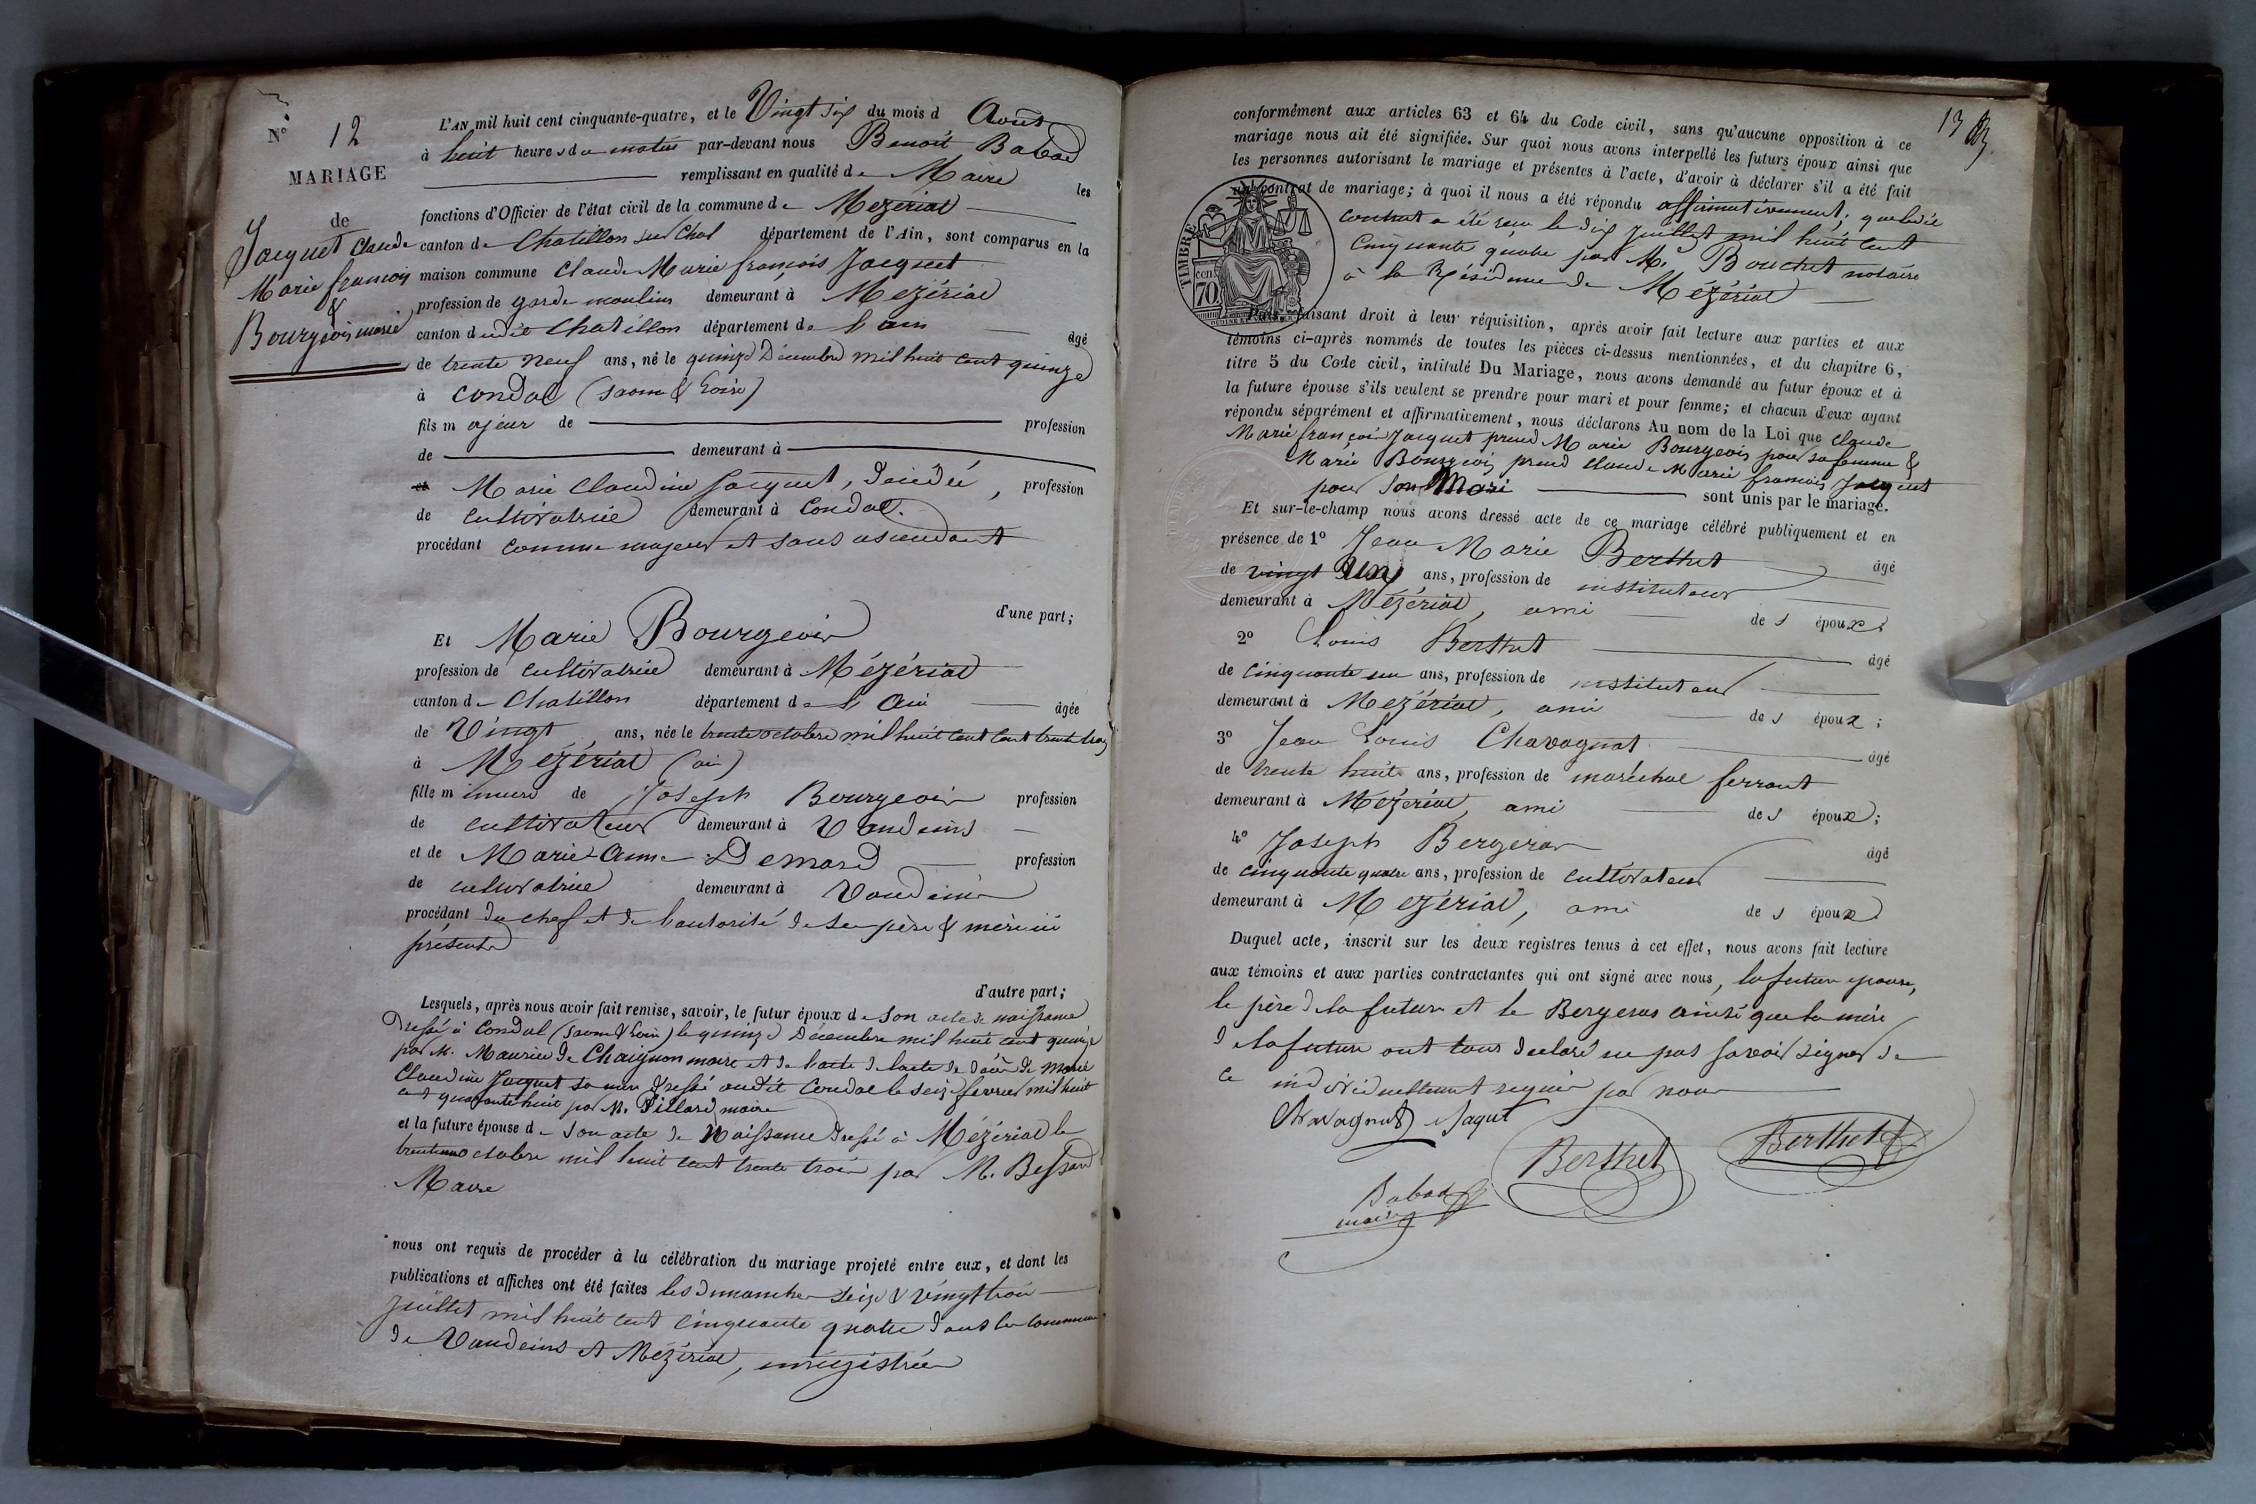 N° 12
MARIAGE
de
Jacquet Claude
Marie françois
&
Bourgeois marie
L'AN mil huit cent cinquante-quatre, et le Vingt six du mois d Août
à huit heures du matin par-devant nous Benoit Babad
remplissant en qualité de Maire les
fonctions d'Officier de l'état civil de la commune de Mezériat
canton de Chatillon sur Chal département de l'Ain, sont comparus en la
maison commune Claude Marie françois Jacquet
profession de garde moulins demeurant à Mezériat
canton dudit Chatillon département de l'ain âgé
de trente neuf ans, né le quinze Décembre mil huit cent quinze
à Condal (Saone & Loire)
fils majeur de profession
de demeurant à
et Marie Claudine Jacquet, décédée, profession
de cultivatrice demeurant à Condal.
procédant comme majeur et sans ascendant
d'une part;
Et Marie Bourgeois
profession de cultivatrice demeurant à Mézériat
canton de Chatillon département de l'Ain âgée
de Vingt ans, née le trente octobre mil huit cent cent trente trois
à Mézériat (ain)
fille mineure de Joseph Bourgeois profession
de cultivateur demeurant à Vandeins
et de Marie-Anne Demard profession
de cultivatrice demeurant à Vandeins
procédant du chef et de l'autorité de ses père & mère ici
présents
d'autre part;
Lesquels, après nous avoir fait remise, savoir, le futur époux de son acte de naissance
Dressé à Condal (Saone & Loire) le quinze Décembre mil huit cent quinze
par M. Maurice de Chaignon maire et de l'acte de l'acte de décès de Marie
Claudine Jacquet sa mère dressé audit Condal le seize février mil huit
cent quarante huit par M. Pillard maire
et la future épouse de son acte de Naissance dressé à Mézériat le
trente un octobre mil huit cent trente trois par M. Bessard
Maire
nous ont requis de procéder à la célébration du mariage projeté entre eux, et dont les
publications et affiches ont été faites les dimanches seize & vingt trois
Juillet mil huit cent cinquante quatre dans les communes
de Vandeins et Mézériat, enregistrées
13
conformément aux articles 63 et 64 du Code civil, sans qu'aucune opposition à ce
mariage nous ait été signifiée. Sur quoi nous avons interpellé les futurs époux ainsi que
les personnes autorisant le mariage et présentes à l'acte, d'avoir à déclarer s'il a été fait
un contrat de mariage; à quoi il nous a été répondu affirmativement; que ledit
contrat a été reçu le dix juillet mil huit cent
cinquante quatre par Me Bouchet notaire
à la Résidence de Mézériat
TIMBRE
cent.
70
Puis, faisant droit à leur réquisition, après avoir fait lecture aux parties et aux
témoins ci-après nommés de toutes les pièces ci-dessus mentionnées, et du chapitre 6,
titre 5 du Code civil, intitulé Du Mariage, nous avons demandé au futur époux et à
la future épouse s'ils veulent se prendre pour mari et pour femme; et chacun d'eux ayant
répondu séparément et affirmativement, nous déclarons Au nom de la Loi que Claude
Marie françois Jacquet prend Marie Bourgeois pour sa femme &
Marie Bourgeois prend Claude Marie françois Jacquet
pour son Mari sont unis par le mariage.
Et sur-le-champ nous avons dressé acte de ce mariage célébré publiquement et en
présence de 1° Jean Marie Berthet âgé
de vingt un ans, profession de instituteur
demeurant à Mézériat, ami des époux;
2° Louis Berthet âgé
de cinquante un ans, profession de instituteur
demeurant à Mezériat, ami des époux;
3° Jean Louis Chavagnat âgé
de trente huit ans, profession de maréchal ferrant
demeurant à Mézériat, ami des époux;
4° Joseph Bergeron âgé
de cinquante quatre ans, profession de cultivateur
demeurant à Mezériat, ami des époux.
Duquel acte, inscrit sur les deux registres tenus à cet effet, nous avons fait lecture
aux témoins et aux parties contractantes qui ont signé avec nous, la future epouse,
le père de la future et le Bergeron ainsi que la mère
de la future ont tous declaré ne pas savoir signer de
ce individuellement requis par nous
Chavagnat Jaquet
Berthet Berthet
Babad
maire